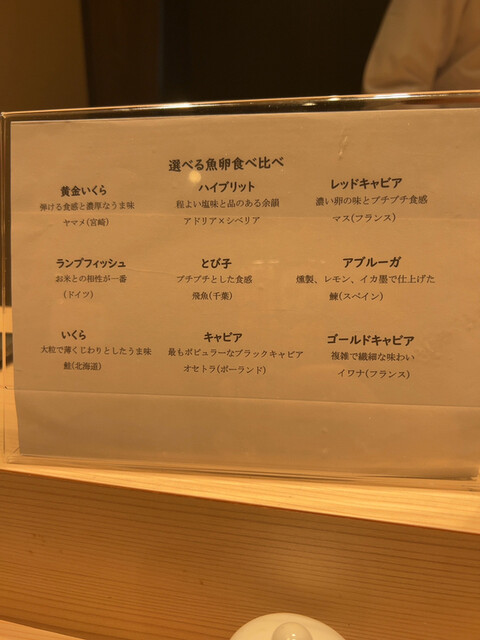 選べる魚卵食べ比べ
黄金いくら
弾ける食感と濃厚なうま味
ヤマメ(宮崎)
ハイブリット
程よい塩味と品のある余韻
アドリア×シベリア
レッドキャビア
濃い卵の味とプチプチ食感
マス(フランス)
ランプフィッシュ
お米との相性が一番
(ドイツ)
とび子
プチプチとした食感
飛魚(千葉)
アブルーガ
燻製、レモン、イカ墨で仕上げた
鰊(スペイン)
いくら
大粒で薄くじわりとしたうま味
鮭(北海道)
キャビア
最もポピュラーなブラックキャビア
オセトラ(ポーランド)
ゴールドキャビア
複雑で繊細な味わい
イワナ(フランス)